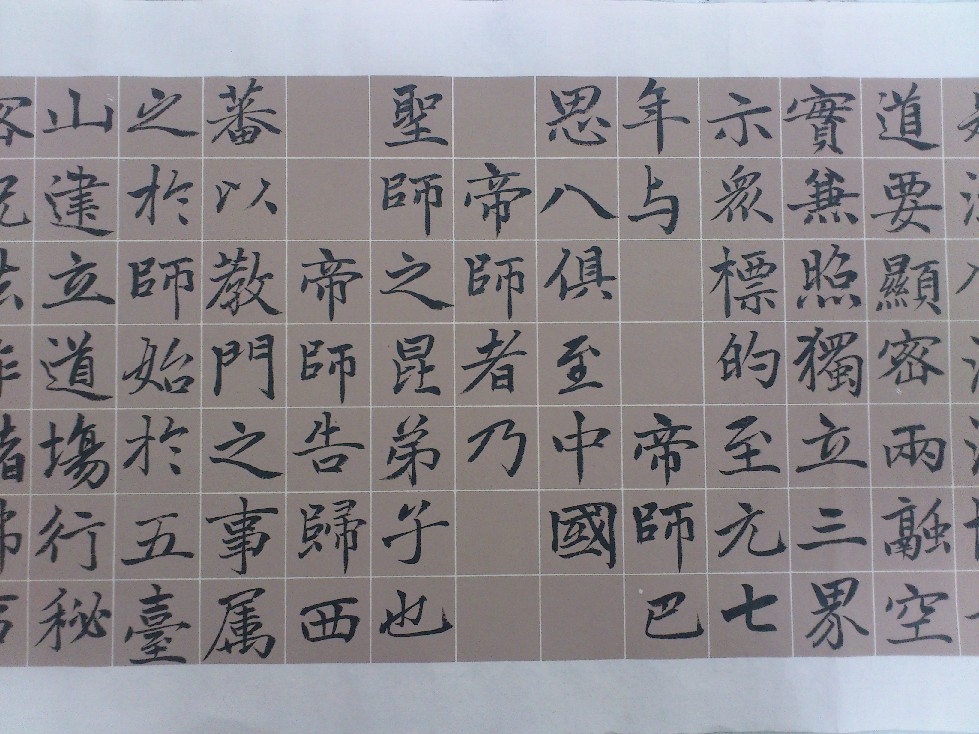 道要顯密兩融空
實兼照獨立三界
示衆標的至元七
年与帝師巴
思八俱至中國
帝師者乃
聖師之昆弟子也
帝師告歸西
蕃以教門之事属
之於師始於五臺
山建立道場行秘